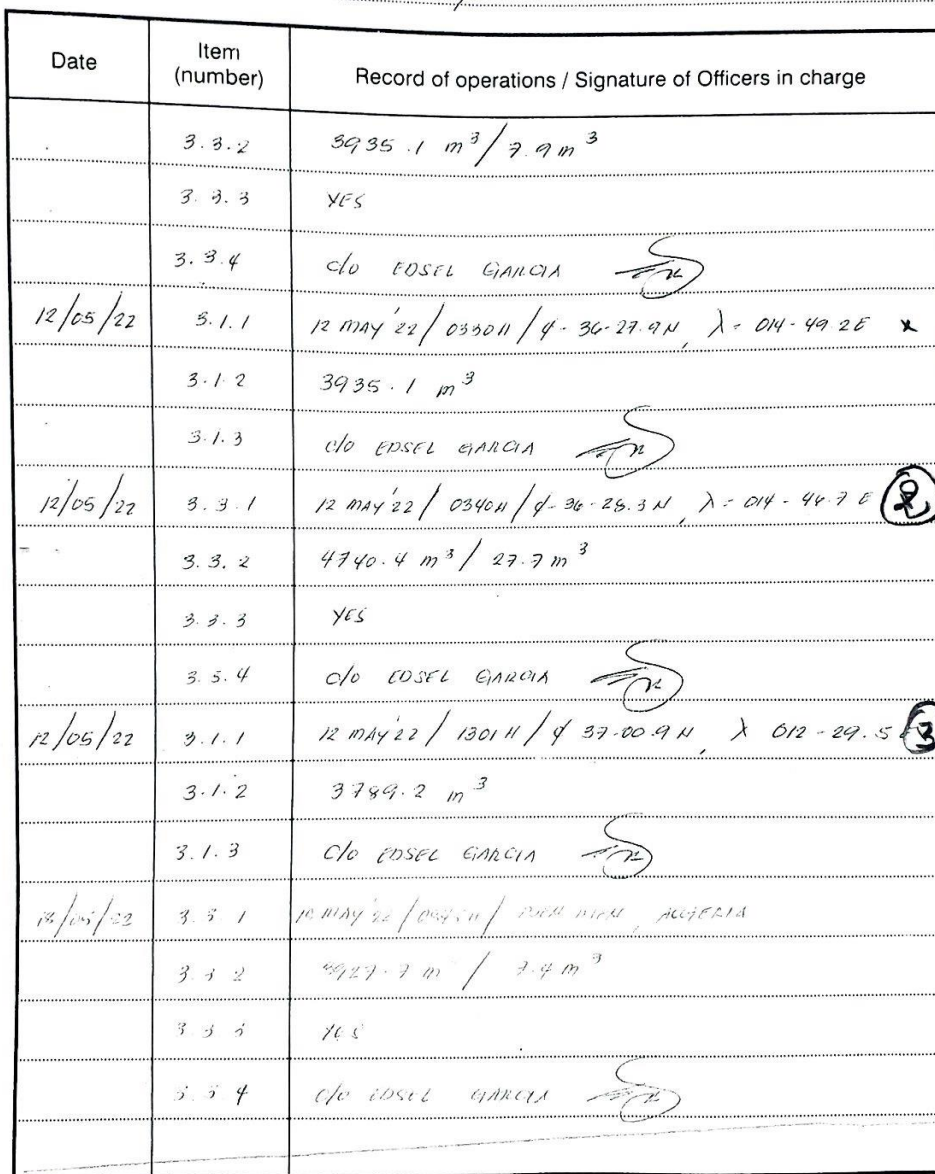 Date Item (number) Record of operations / Signature of Officers in charge
3.3.2 3935.1 m³ / 7.9 m³
3.3.3 YES
3.3.4 C/O EDSEL GARCIA
12/05/22 3.1.1 12 MAY '22 / 0330H / φ - 36-27.9N, λ = 014-49.2E x
3.1.2 3935.1 m³
3.1.3 C/O EDSEL GARCIA
12/05/22 3.3.1 12 MAY '22 / 0340H / φ - 36-28.3N, λ = 014-46.7E 2
3.3.2 4740.4 m³ / 27.7 m³
3.3.3 YES
3.3.4 C/O EDSEL GARCIA
12/05/22 3.1.1 12 MAY '22 / 1301H / φ 37-00.9N, λ 012-29.5E 3
3.1.2 3789.2 m³
3.1.3 C/O EDSEL GARCIA
3.3.1 MAY '22 / ALGERIA
3.3.2 3927.7 m³ / 7.4 m³
3.3.3 YES
3.3.4 C/O EDSEL GARCIA